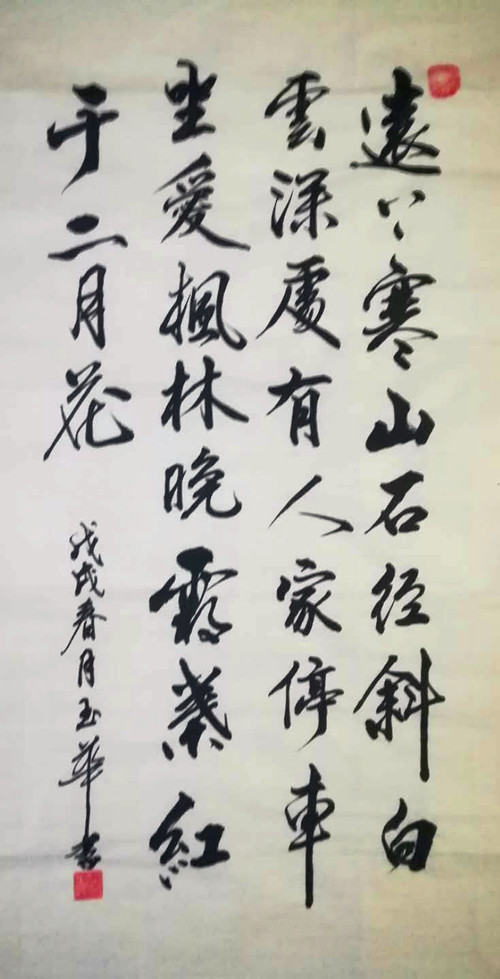 遠上寒山石径斜白
雲深處有人家停車
坐愛楓林晚霜葉紅
于二月花
戊戌春月玉華書